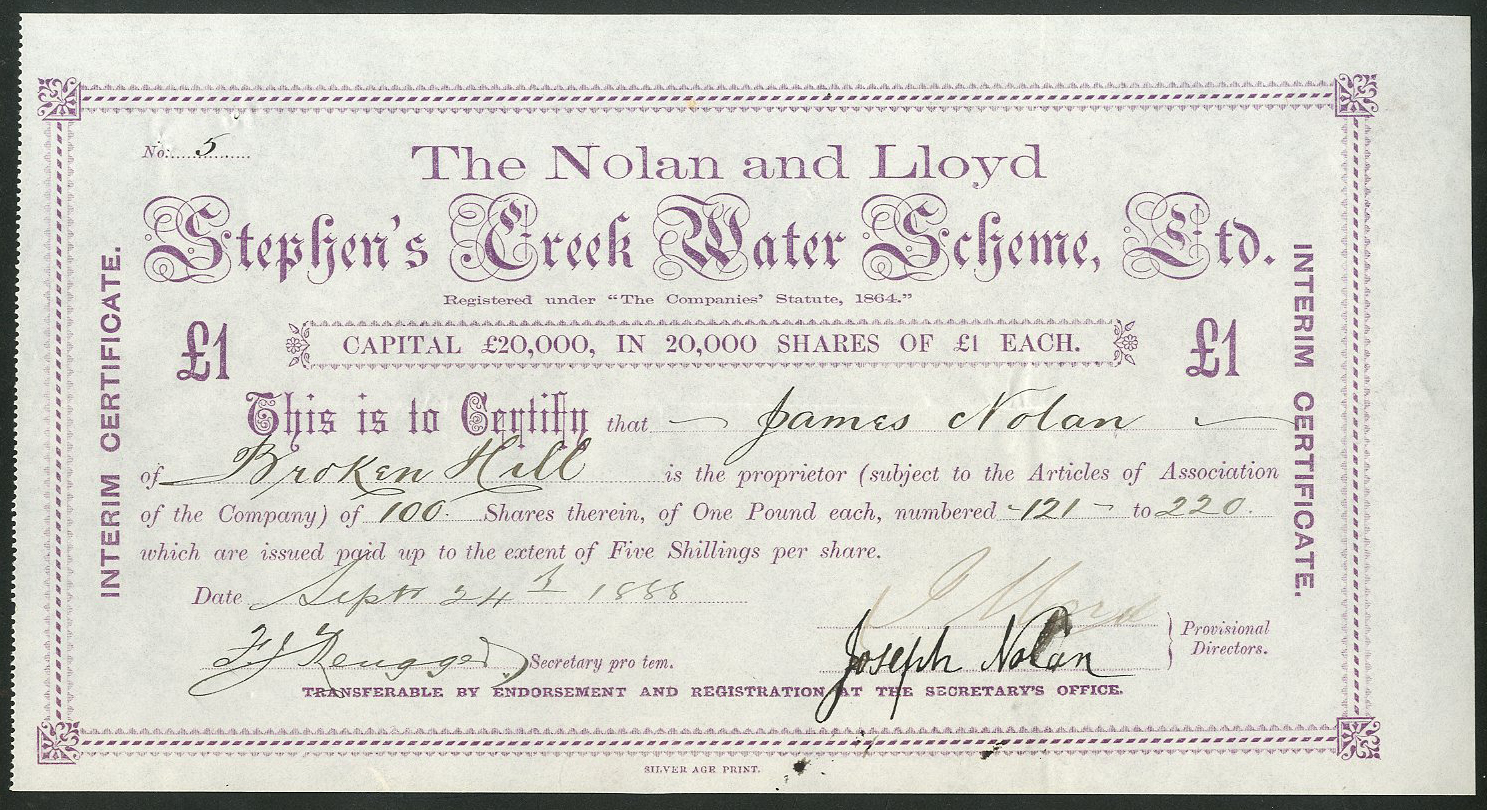 No. 5
The Nolan and Lloyd
Stephen's Creek Water Scheme, Ltd.
Registered under "The Companies' Statute, 1864."
£1 CAPITAL £20,000, IN 20,000 SHARES OF £1 EACH. £1
INTERIM CERTIFICATE.
INTERIM CERTIFICATE.
This is to Certify that James Nolan
of Broken Hill is the proprietor (subject to the Articles of Association
of the Company) of 100 Shares therein, of One Pound each, numbered 121 to 220.
which are issued paid up to the extent of Five Shillings per share.
Date Septr 24th 1888
Secretary pro tem.
Joseph Nolan
Provisional
Directors.
TRANSFERABLE BY ENDORSEMENT AND REGISTRATION AT THE SECRETARY'S OFFICE.
SILVER AGE PRINT.